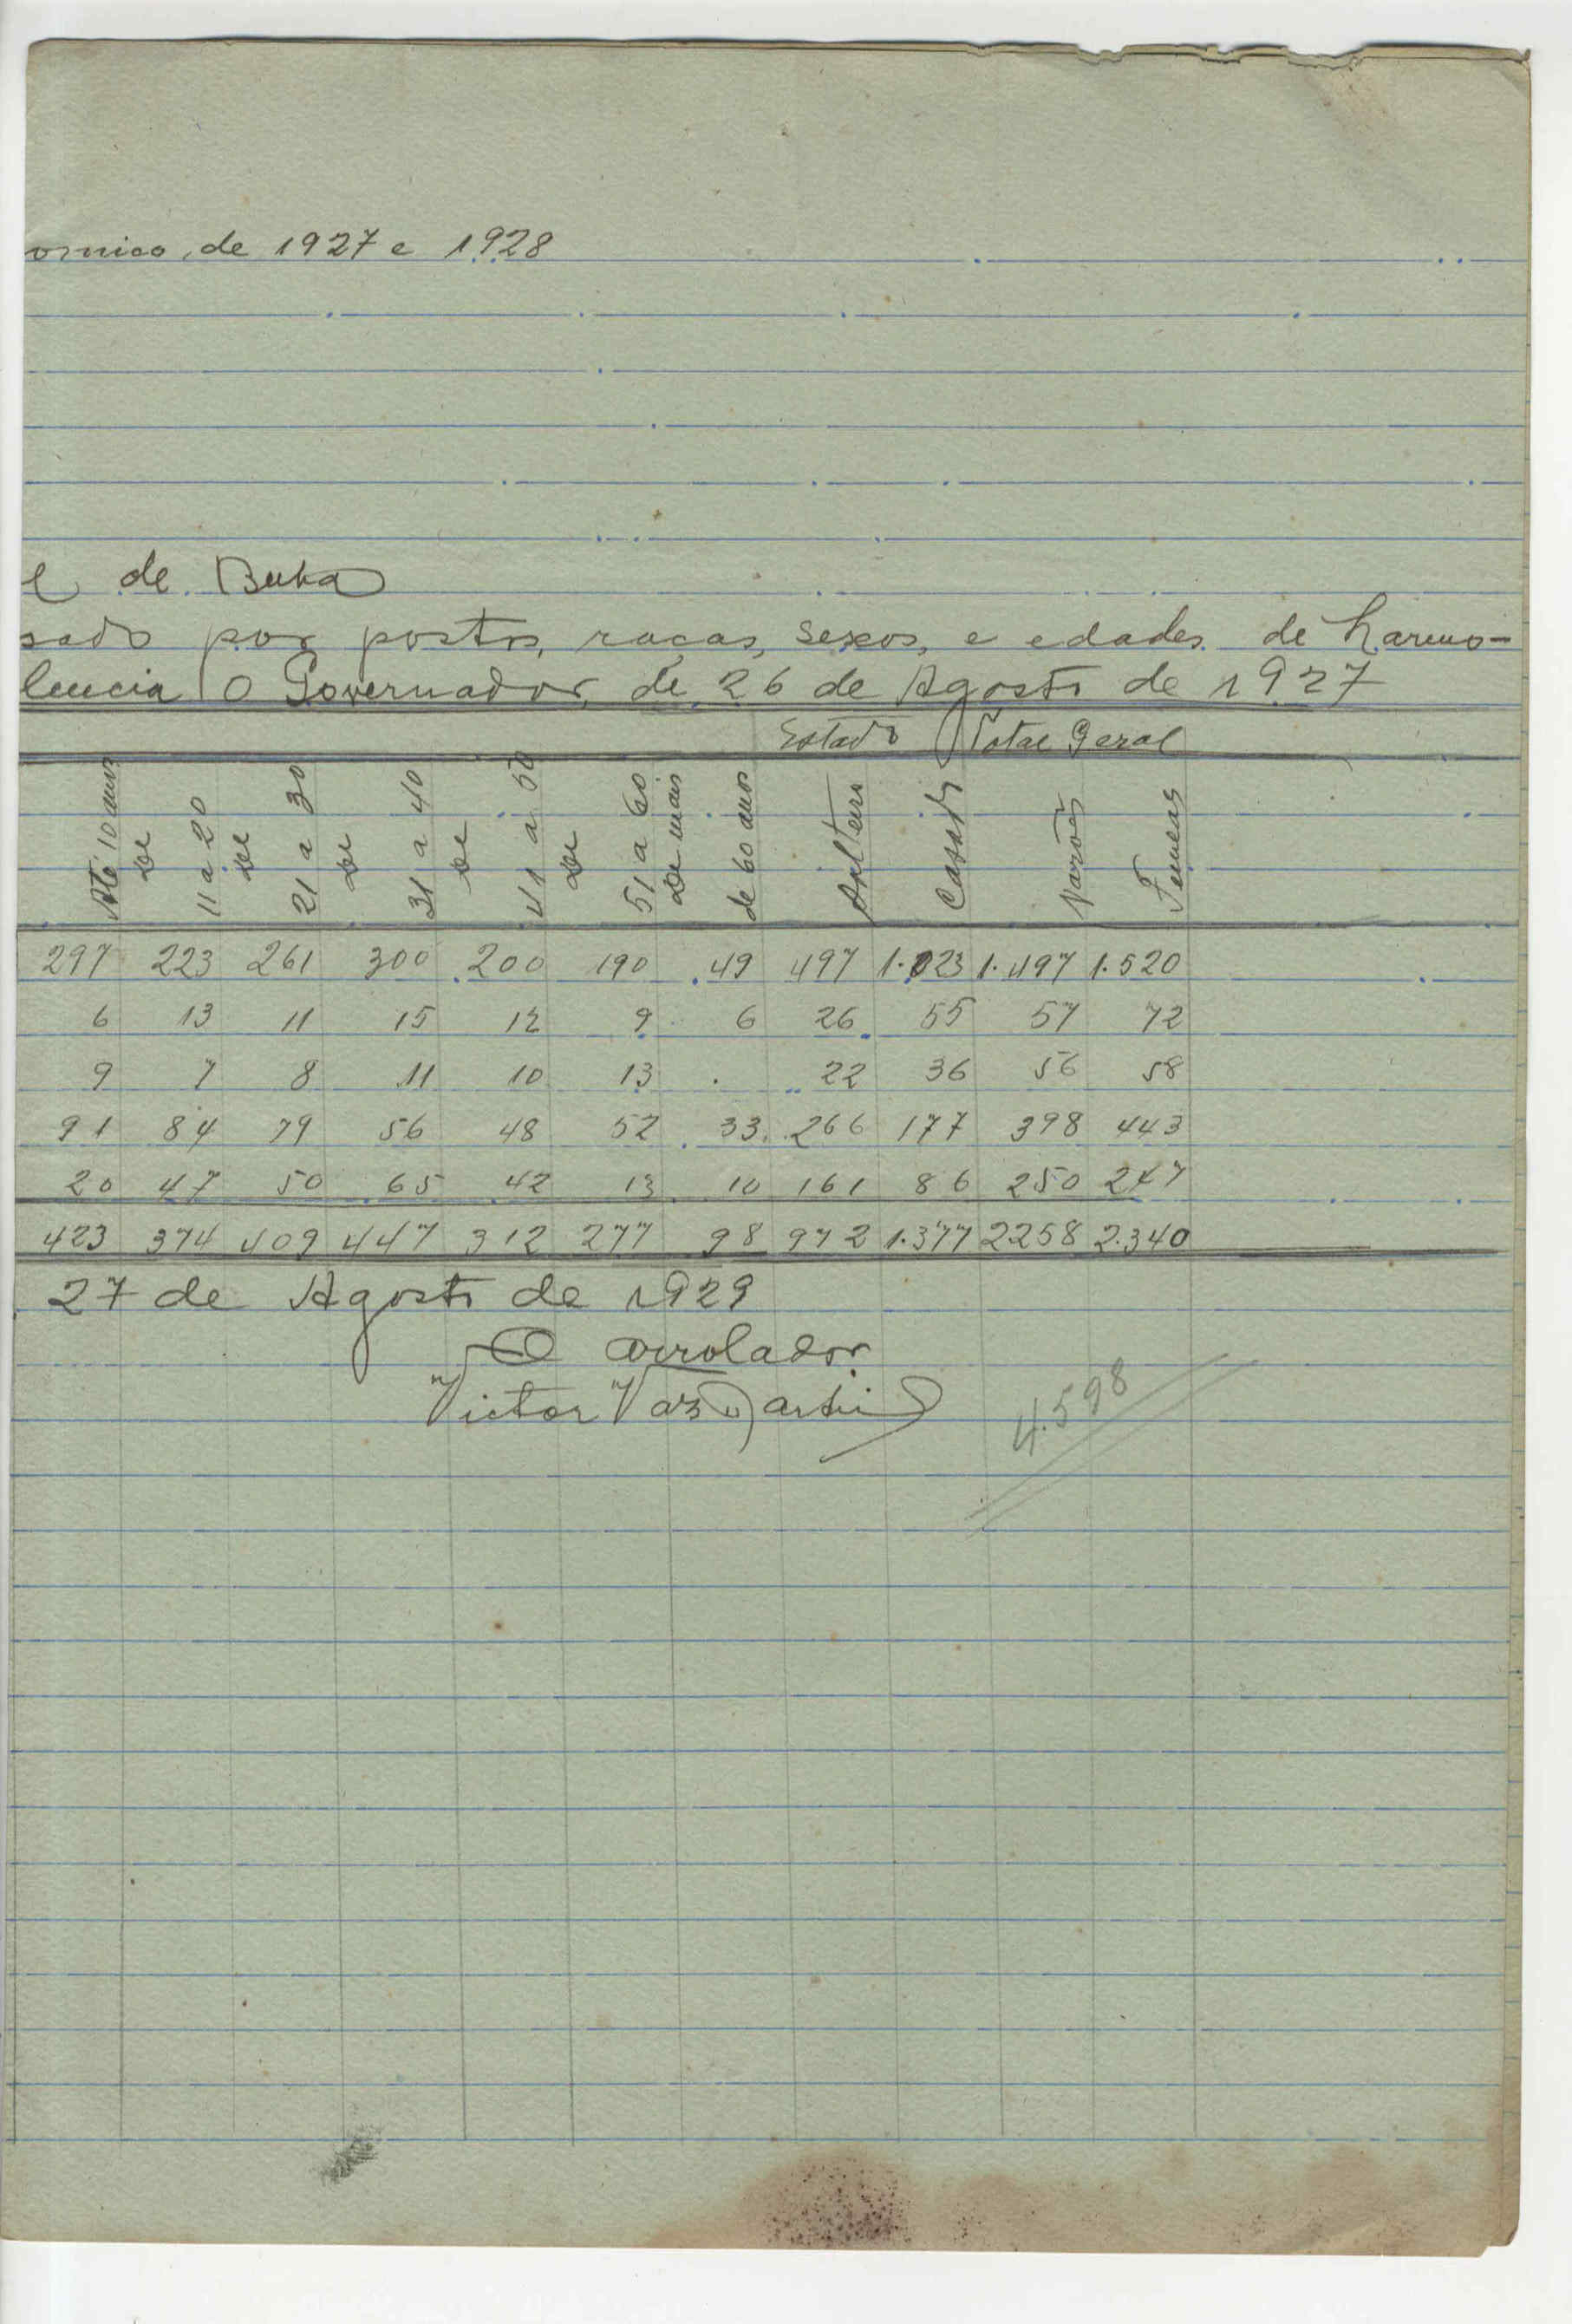 omico, de 1927 e 1928
e de Buba
sado por postos, raças, sexos, e edades de harmo-
lencia O Governador, de 26 de Agosto de 1927
Estado Total Geral
Até 10 anos De 11 a 20 De 21 a 30 De 31 a 40 De 41 a 50 De 51 a 60 De mais de 60 anos Solteiro Casado Varões Femeas
297 223 261 300 200 190 49 497 1.023 1.497 1.520
6 13 11 15 12 9 6 26 55 57 72
9 7 8 11 10 13 . 22 36 56 58
91 84 79 56 48 52 33 266 177 398 443
20 47 50 65 42 13 10 161 86 250 247
423 374 409 447 312 277 98 972 1.377 2258 2.340
27 de Agosto de 1929
O arrolador
Victor Vaz Martins
4.598